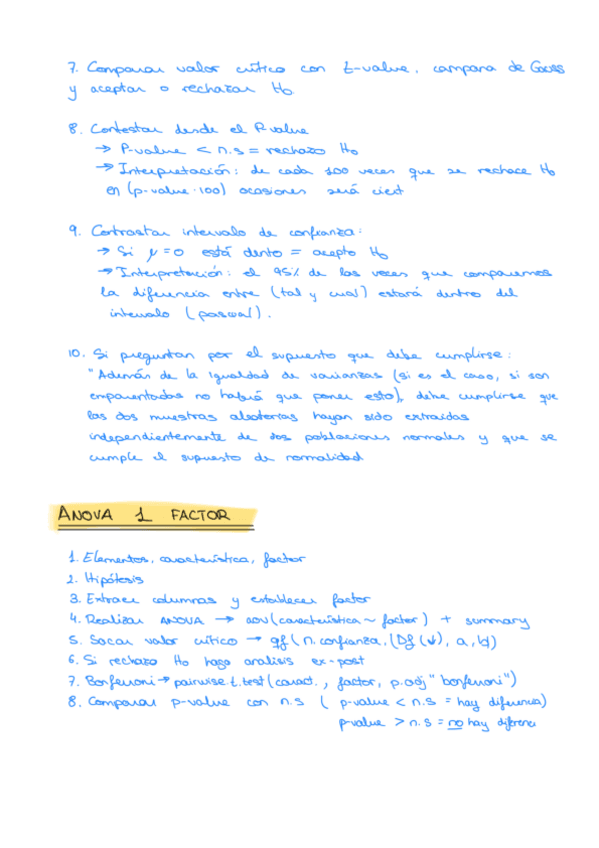 7. Comparar valor crítico con t-value, campana de Gauss
y aceptar o rechazar Ho.
8. Contestar desde el P.value
→ P-value < n.s = rechazo Ho
→ Interpretación: de cada 100 veces que se rechace Ho
en (p-value·100) ocasiones será ciert
9. Contrastar intervalo de confianza:
→ Si μ=0 está dento = acepto Ho
→ Interpretación: el 95% de las veces que comparemos
la diferencia entre (tal y cual) estará dentro del
intervalo (pascual).
10. Si preguntan por el supuesto que debe cumplirse:
"Además de la igualdad de varianzas (si es el caso, si son
emparentadas no habrá que poner esto), debe cumplirse que
las dos muestras aleatorias hayan sido extraídas
independientemente de dos poblaciones normales y que se
cumple el supuesto de normalidad
ANOVA 1 FACTOR
1. Elementos, característica, factor
2. Hipótesis
3. Extraer columnas y establecer factor
4. Realizar ANOVA → aov(característica ~ factor) + summary
5. Sacar valor crítico → qf(n.confianza, (Df(↓), a, b)
6. Si rechazo Ho hago analisis ex-post
7. Bonferroni → pairwise.t.test(caract., factor, p.adj "bonferroni")
8. Comparar p-value con n.s ( p-value < n.s = hay diferencia)
p-value > n.s = no hay diferenc